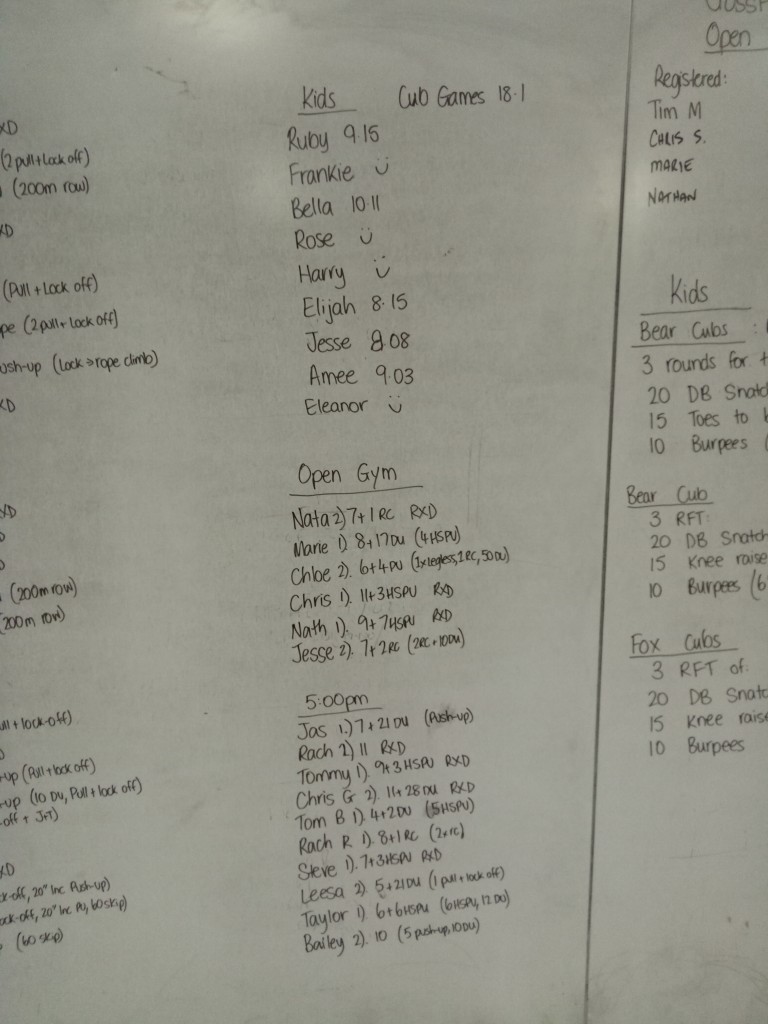 XD
(2 pull + Lock off)
(200m row)
XD
(Pull + Lock off)
pe (2 pull + Lock off)
ush-up (Lock > rope climb)
XD
XD
(200m row)
200m row)
ull + lock-off)
-up (Pull + lock off)
-up (10 DU, Pull + lock off)
off + J+T)
XD
ck-off, 20" Inc Push-up)
ock-off, 20" Inc PU, 60 skip)
(60 skip)
Kids Cub Games 18.1
Ruby 9.15
Frankie ü
Bella 10.11
Rose ü
Harry ü
Elijah 8.15
Jesse 8.08
Amee 9.03
Eleanor ü
Open Gym
Nata 2) 7+1 RC RXD
Marie 1) 8+17DU (4HSPU)
Chloe 2). 6+4PU (1x legless, 2RC, 50DU)
Chris 1). 11+3HSPU RXD
Nath 1). 9+7HSPU RXD
Jesse 2). 7+2RC (2RC+10DU)
5:00pm
Jas 1.) 7+21DU (Push-up)
Rach 2) 11 RXD
Tommy 1). 9+3HSPU RXD
Chris G 2). 11+28DU RXD
Tom B 1). 4+2DU (5HSPU)
Rach R 1). 8+1RC (2xrc)
Steve 1). 7+3HSPU RXD
Leesa 2). 5+21DU (1 pull + lock off)
Taylor 1) 6+6HSPU (6HSPU, 12DU)
Bailey 2). 10 (5 push-up, 10DU)
Open
Registered:
Tim M
CHRIS S.
MARIE
NATHAN
Kids
Bear Cubs :
3 rounds for t
20 DB Snatc
15 Toes to b
10 Burpees (
Bear Cub
3 RFT:
20 DB Snatch
15 Knee raise
10 Burpees (6
Fox Cubs
3 RFT of:
20 DB Snatc
15 Knee raise
10 Burpees